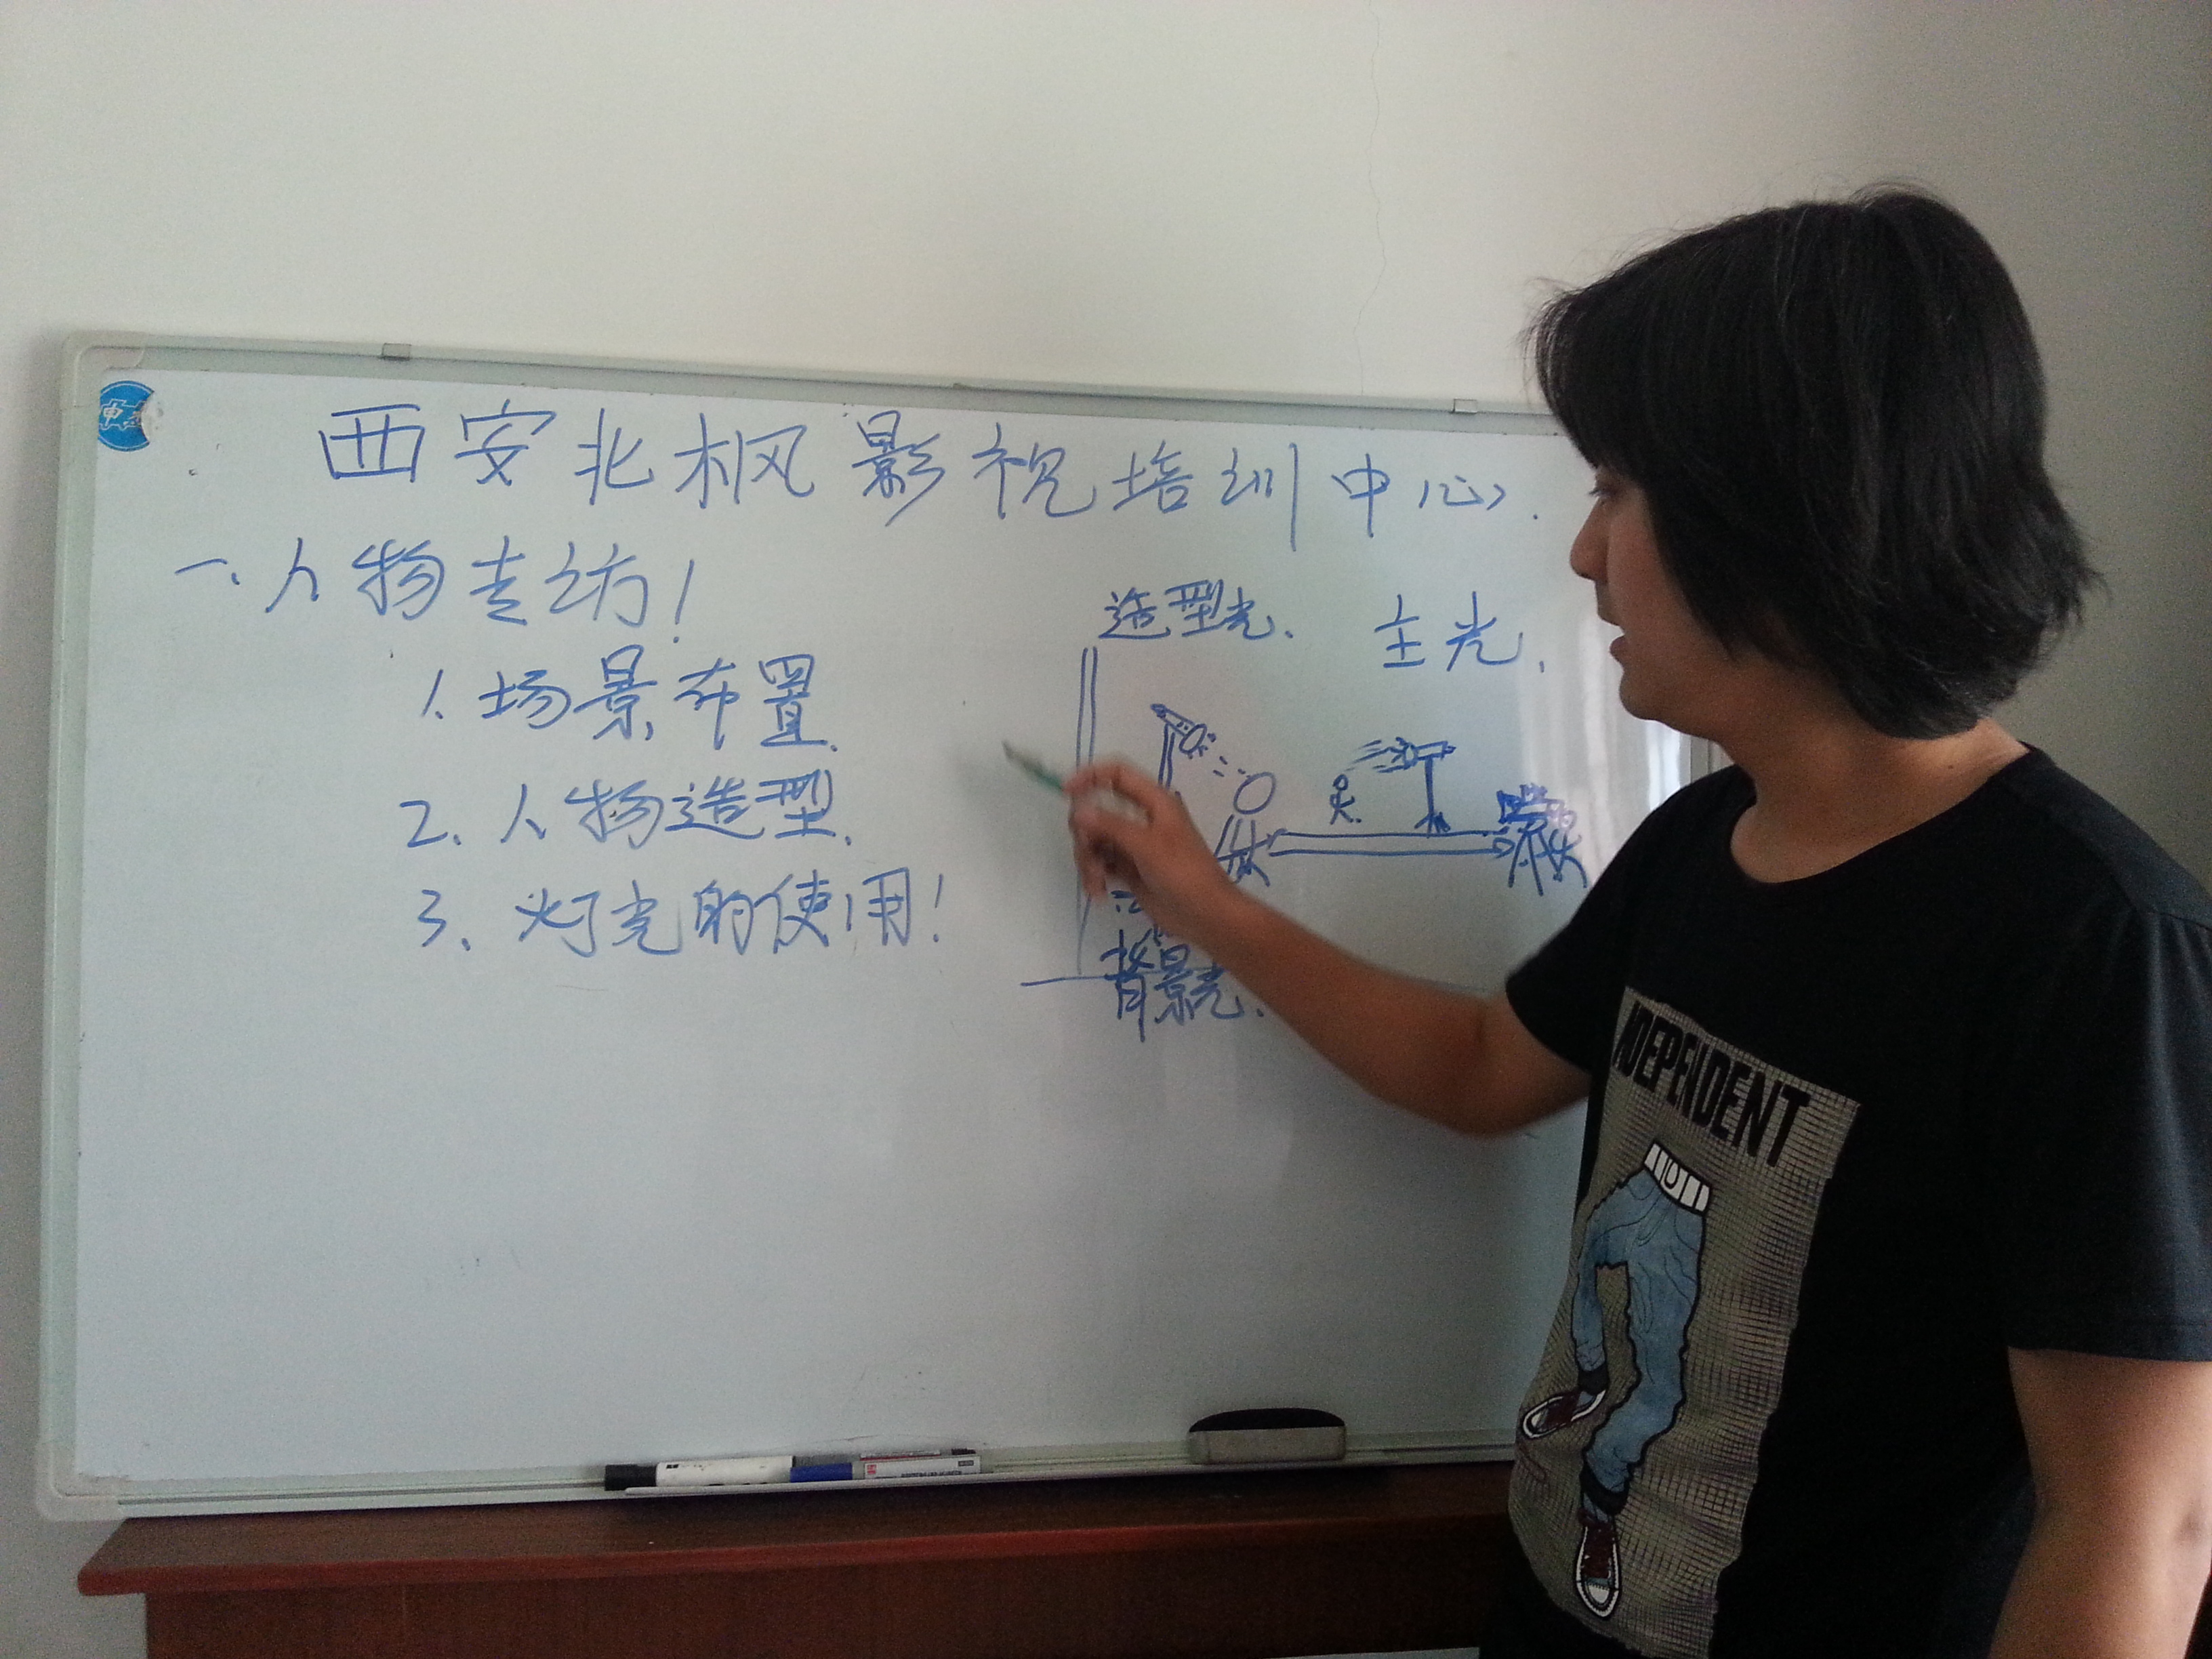 西安北枫影视培训中心.
一、人物专访!
1.场景布置.
2.人物造型.
3、灯光的使用!
造型光、
主光、
背景光.
INDEPENDENT